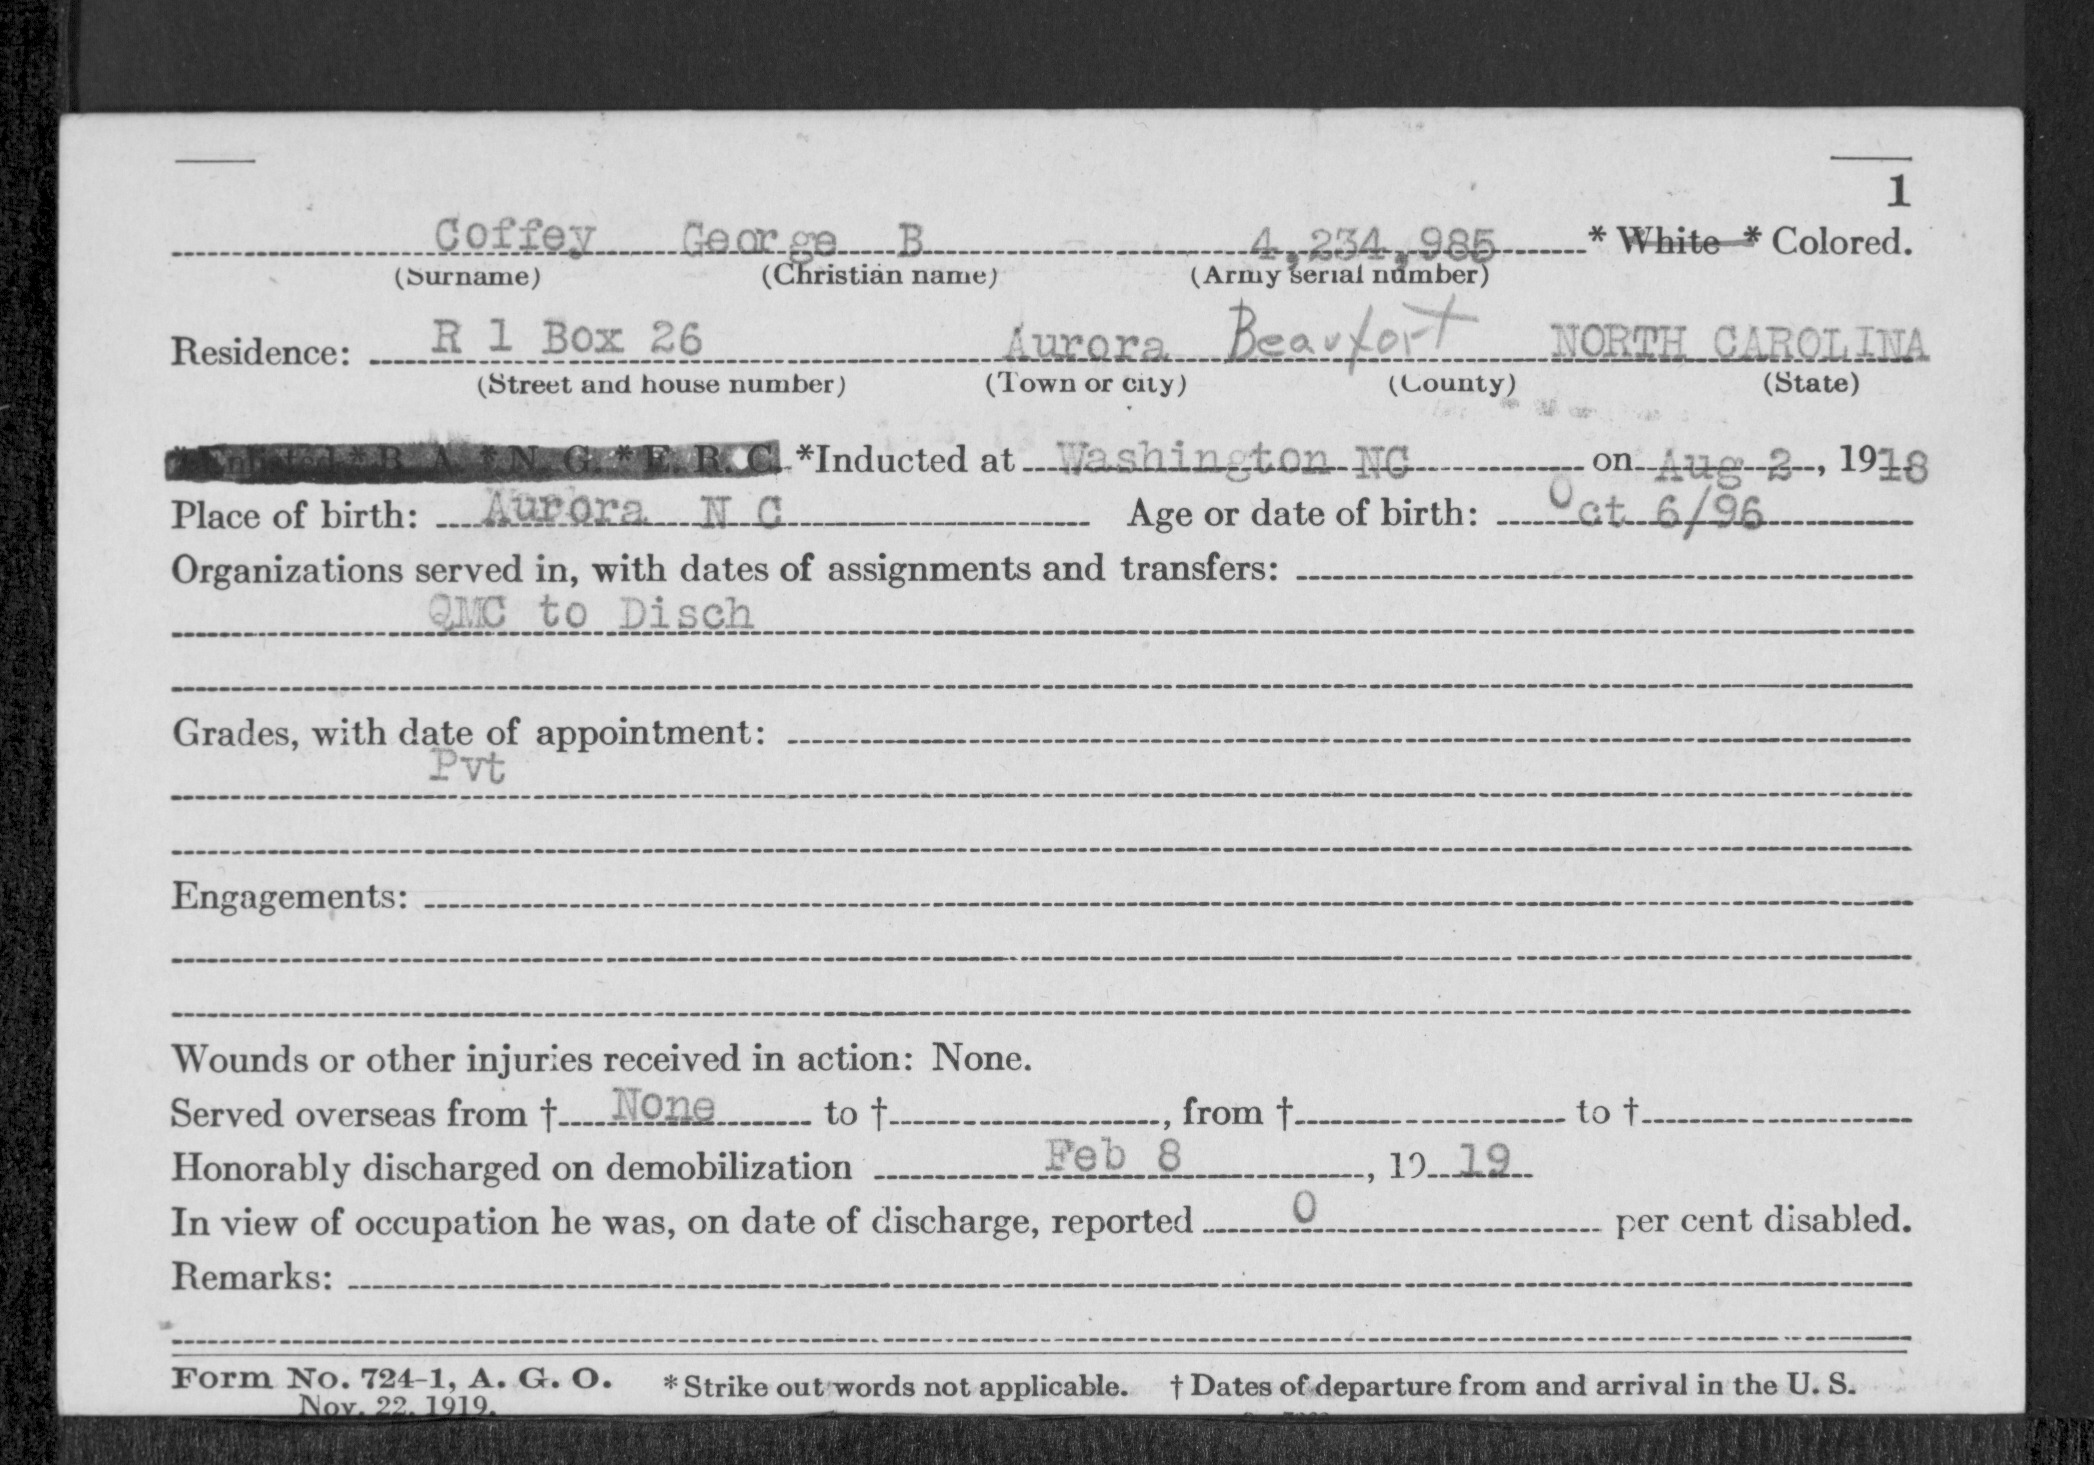 1
Coffey George B 4,234,985 * White * Colored.
(Surname) (Christian name) (Army serial number)
Residence: R 1 Box 26 Aurora Beaufort NORTH CAROLINA
(Street and house number) (Town or city) (County) (State)
*Enlisted *R. A. *N. G. *E. R. C. *Inducted at Washington NC on Aug 2, 1918
Place of birth: Aurora N C Age or date of birth: Oct 6/96
Organizations served in, with dates of assignments and transfers:
QMC to Disch
Grades, with date of appointment:
Pvt
Engagements:
Wounds or other injuries received in action: None.
Served overseas from † None to †, from † to †
Honorably discharged on demobilization Feb 8, 19 19
In view of occupation he was, on date of discharge, reported 0 per cent disabled.
Remarks:
Form No. 724-1, A. G. O. *Strike out words not applicable. † Dates of departure from and arrival in the U. S.
Nov. 22, 1919.